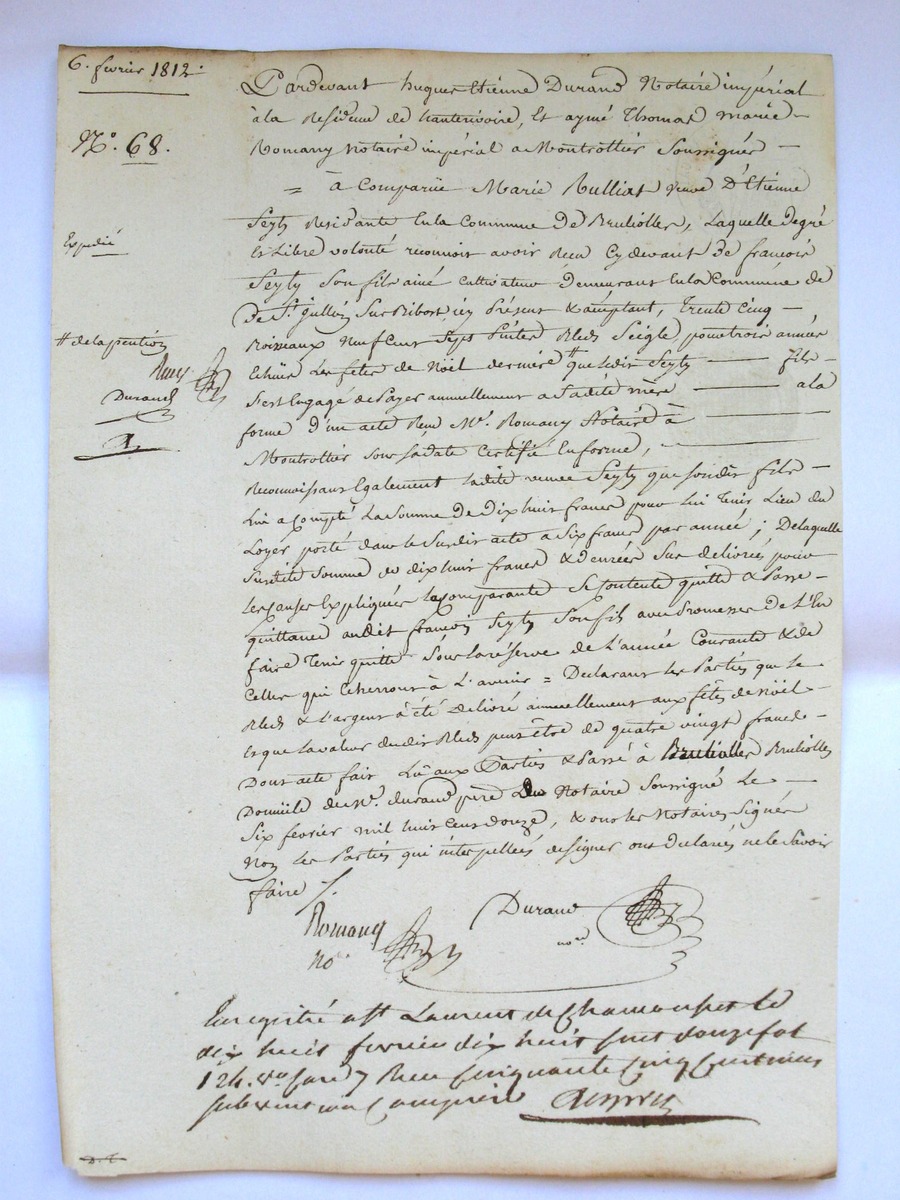 6. fevrier 1812.
N.° 68.
Expedié
# de la pention
Rmy
Durand
Pardevant hugues Etienne Durand Notaire impérial
à la Residence de hauterivoire, Et aymé Thomas marie
Romany notaire impérial a Montrottier Soussignés
= à Comparüe Marie Rulliat veuve D'Etienne
Seyty Residante En la Commune De Brulioller, Laquelle de gré
Et Libre volonté reconnoit avoir Recu Cydevant De francois
Seyty Son fils ainé cultivateur demeurant En la Commune de
De St. jullien Sur Bibost, icy Présent & acceptant, Trente Cinq
Boisseaux neuf Cent Sept Pintes Bleds Seigle, pour trois années
Echües Les fêtes de Noël derniere # que ledit Seyty fils
S'est Engagé de Payer annuellement a Sadite mère a la
forme d'un acte Recu Me. Romany Notaire à
Montrottier Sous Sa date Certifié En forme,
Reconnoissant Egalement ladite veuve Seyty que Son dit fils
Lui a Compté La Somme de Dix huit francs pour lui Tenir Lieu du
Loyer porté dans le Susdit acte a Six francs par année ; De laquelle
Susdite Somme de dix huit francs & denrées Sus delivrées pour
les causes Expliquées la comparante Se Contente quitte & Passe
quittance audit francois Seyty Son fils avec Promesse de L'En
faire Tenir quitte Sous la réserve de L'année Courante & de
Celles qui Echerront à L'avenir = Declarant les Parties que le
Bled & L'argent à été delivré annuellement aux fêtes de Noël
et que la valeur dudit Bled peut être de quatre vingt francs
Dont acte fait Lû aux Parties & Passé à Brulioller Brulioller
Domicile du Sr. durand père Du Notaire Soussigné Le
Six fevrier mil huit Cent douze, & ont les Notaires Signés
Non les Parties qui interpellées de signer ont declarés ne le Savoir
faire /.
Romany Durand
no.re no.re
Enregistré a St Laurent de Chamousset le
dix huit fevrier dix huit cent douze fol
124. vo. Case 7 Recu Cinquante Cinq Centimes
subvention Comprise